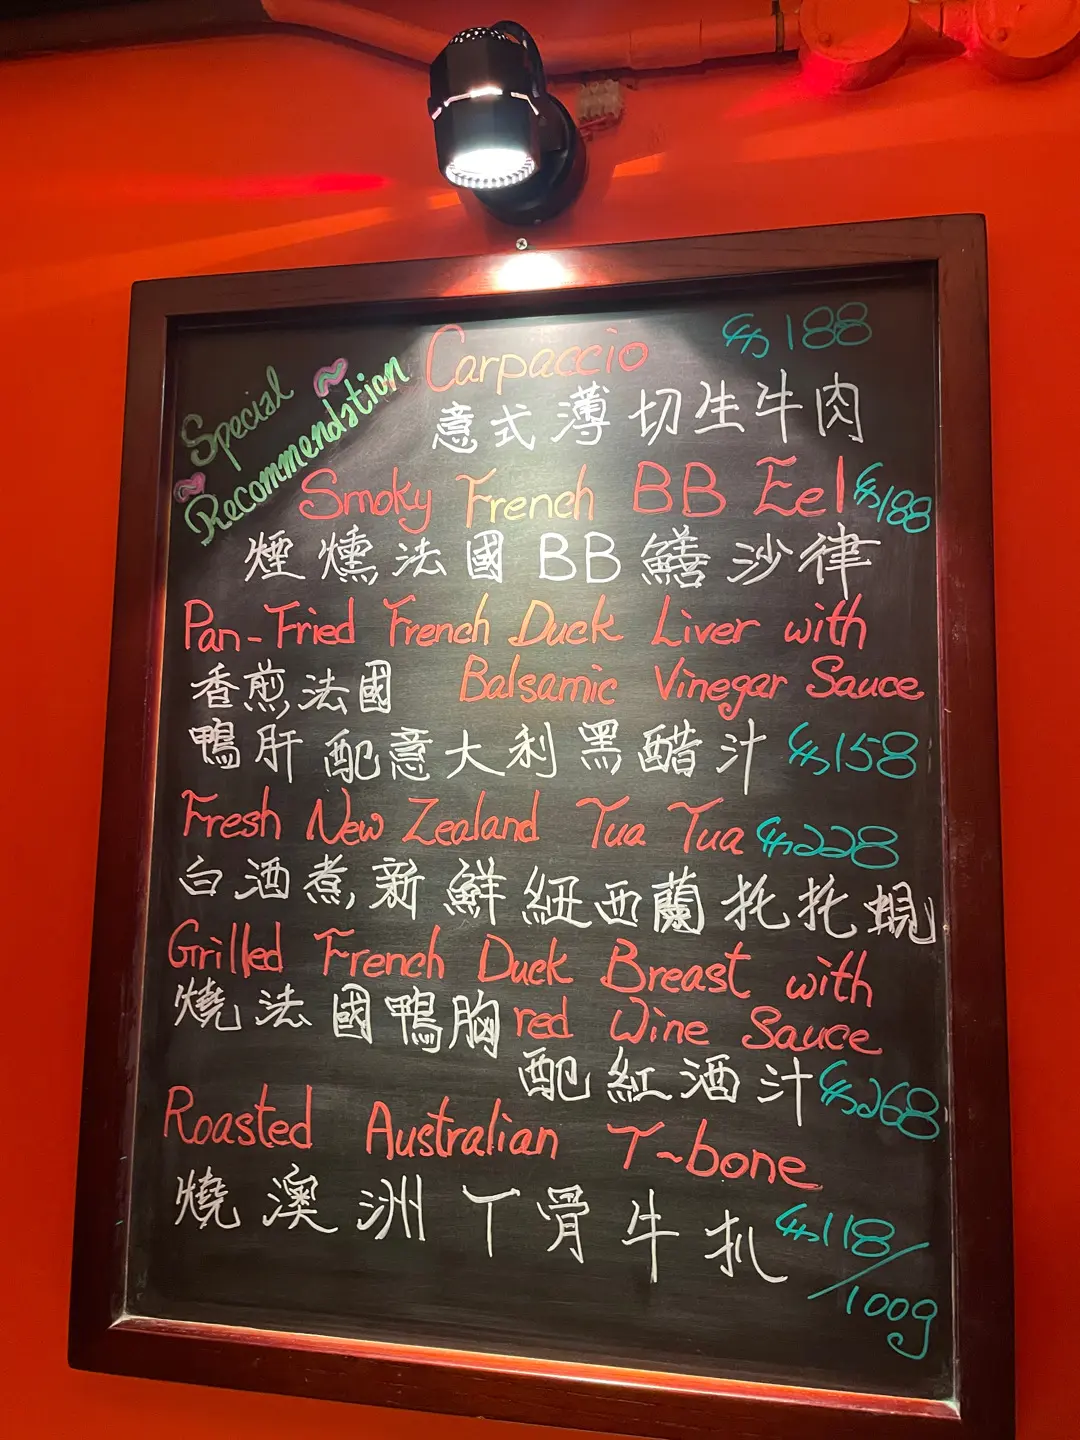 Special
Recommendation
Carpaccio $188
意式薄切生牛肉
Smoky French BB Eel $188
煙燻法國BB鱔沙律
Pan-Fried French Duck Liver with
Balsamic Vinegar Sauce
香煎法國
鴨肝配意大利黑醋汁 $158
Fresh New Zealand Tua Tua $228
白酒煮新鮮紐西蘭托托蜆
Grilled French Duck Breast with
red Wine Sauce
燒法國鴨胸
配紅酒汁 $268
Roasted Australian T-bone
燒澳洲丅骨牛扒 $118/
100g